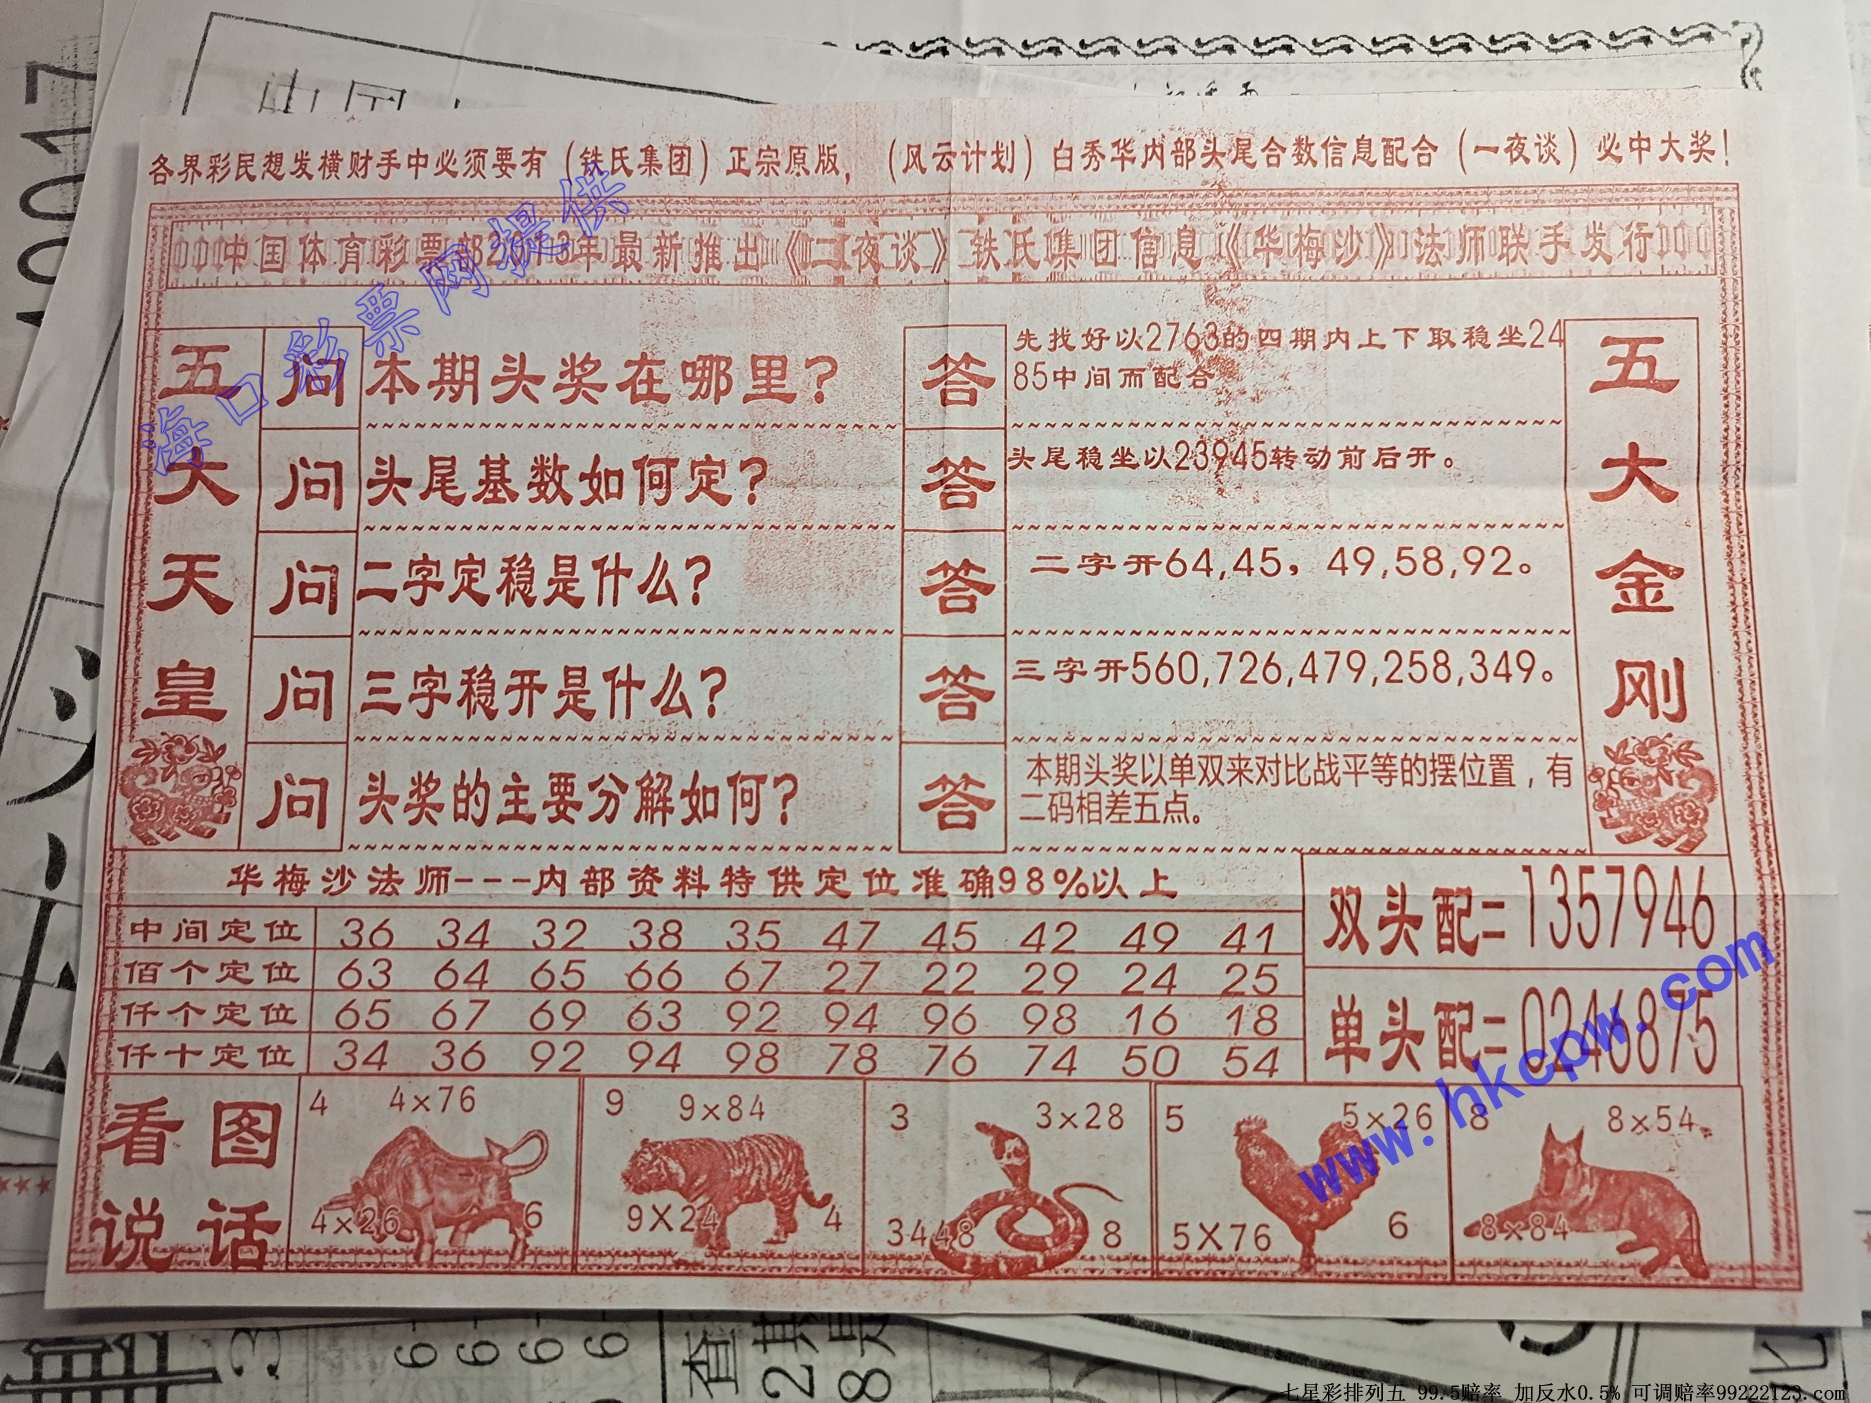 各界彩民想发横财手中必须要有（铁氏集团）正宗原版，（风云计划）白秀华内部头尾合数信息配合（一夜谈）必中大奖！
中国体育彩票部2013年最新推出《二夜谈》铁氏集团信息《华梅沙》法师联手发行
五大天皇
问 本期头奖在哪里？
答 先找好以2763的四期内上下取稳坐24
85中间而配合
问 头尾基数如何定？
答 头尾稳坐以23945转动前后开。
问 二字定稳是什么？
答 二字开64,45，49,58,92。
问 三字稳开是什么？
答 三字开560,726,479,258,349。
问 头奖的主要分解如何？
答 本期头奖以单双来对比战平等的摆位置，有
二码相差五点。
五大金刚
华梅沙法师---内部资料特供定位准确98%以上
中间定位 36 34 32 38 35 47 45 42 49 41
佰个定位 63 64 65 66 67 27 22 29 24 25
仟个定位 65 67 69 63 92 94 96 98 16 18
仟十定位 34 36 92 94 98 78 76 74 50 54
双头配=1357946
单头配=0246875
看图
说话
4 4×76
4×26 6
9 9×84
9×24 4
3 3×28
3448 8
5 5×26
5×76 6
8 8×54
8×84 4
海口彩票网提供
www.hkcpw.com
七星彩排列五 99.5赔率 加反水0.5% 可调赔率99222123.com